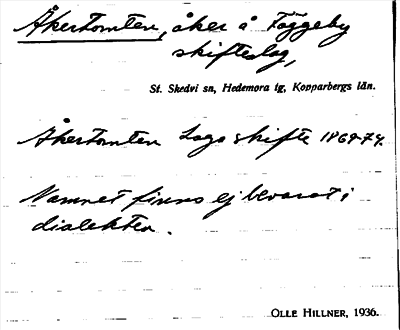 Åkertomten, åker å Foggeby
skifteslag,
St. Skedvi sn, Hedemora tg, Kopparbergs län.
Åkertomten Laga skifte 1869-74.
Namnet finns ej bevarat i
dialekten.
OLLE HILLNER, 1936.